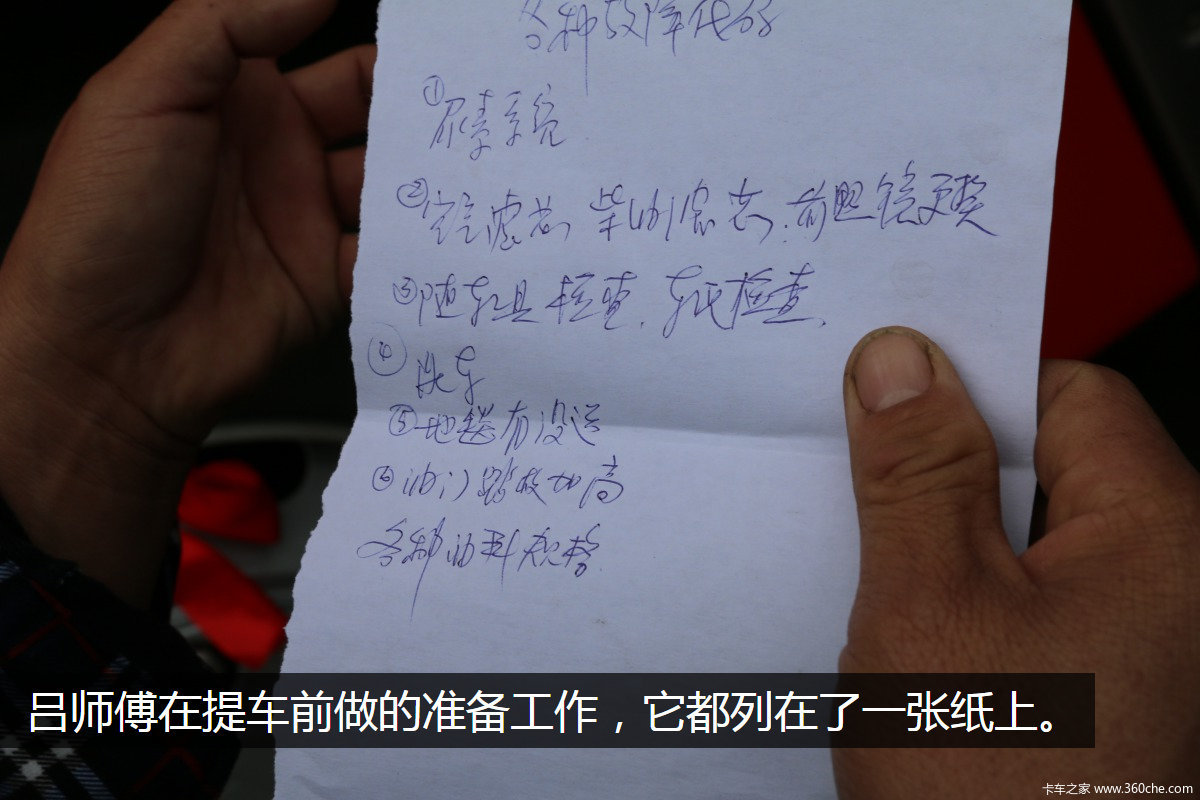 各种故障代码
①尿素系统
②空气滤芯、柴油滤芯、前照镜更换
③随车工具检查、车况检查、
④洗车
⑤地毯有没注
⑥油门踏板加高
各种油料规格
吕师傅在提车前做的准备工作，它都列在了一张纸上。
卡车之家 www.360che.com